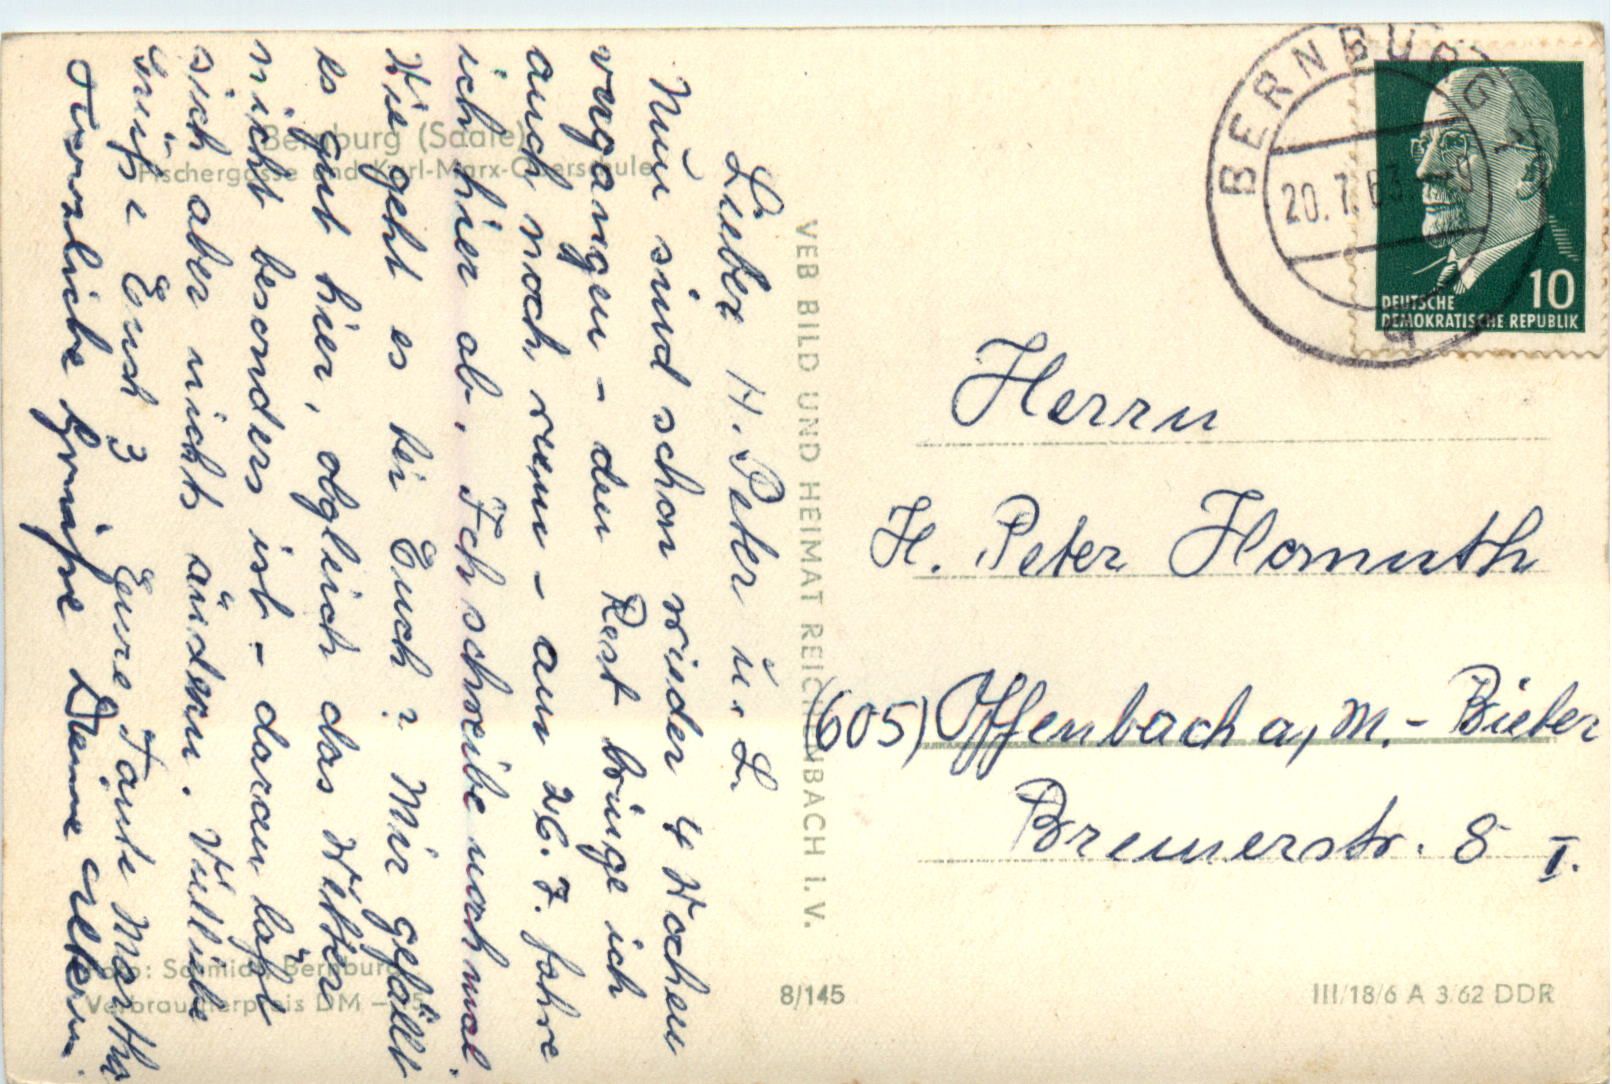 Bernburg (Saale)
Fischergasse und Karl-Marx-Oberschule
Lieber H. Peter u. L.
Nun sind schon wieder 4 Wochen
vergangen – den Rest bringe ich
auch noch rum – am 26.7. fahre
ich hier ab. Ich schreibe nochmal.
Wie geht es bei Euch? Mir gefällt
es gut hier, obgleich das Wetter
nicht besonders ist – daran läßt
sich aber nichts ändern. Viel liebe
Grüße Euch 3 Eure Tante Martha
Herzliche Grüße Deine
VEB BILD UND HEIMAT REICHENBACH I. V.
BERNBURG 1
20.7.63
DEUTSCHE
DEMOKRATISCHE REPUBLIK
10
Herrn
H. Peter Homuth
(605) Offenbach a, M. - Bieber
Bremerstr. 8 I.
Foto: Schmidt, Bernburg
Verbraucherpreis DM –,25
8/145
III/18/6 A 3/62 DDR